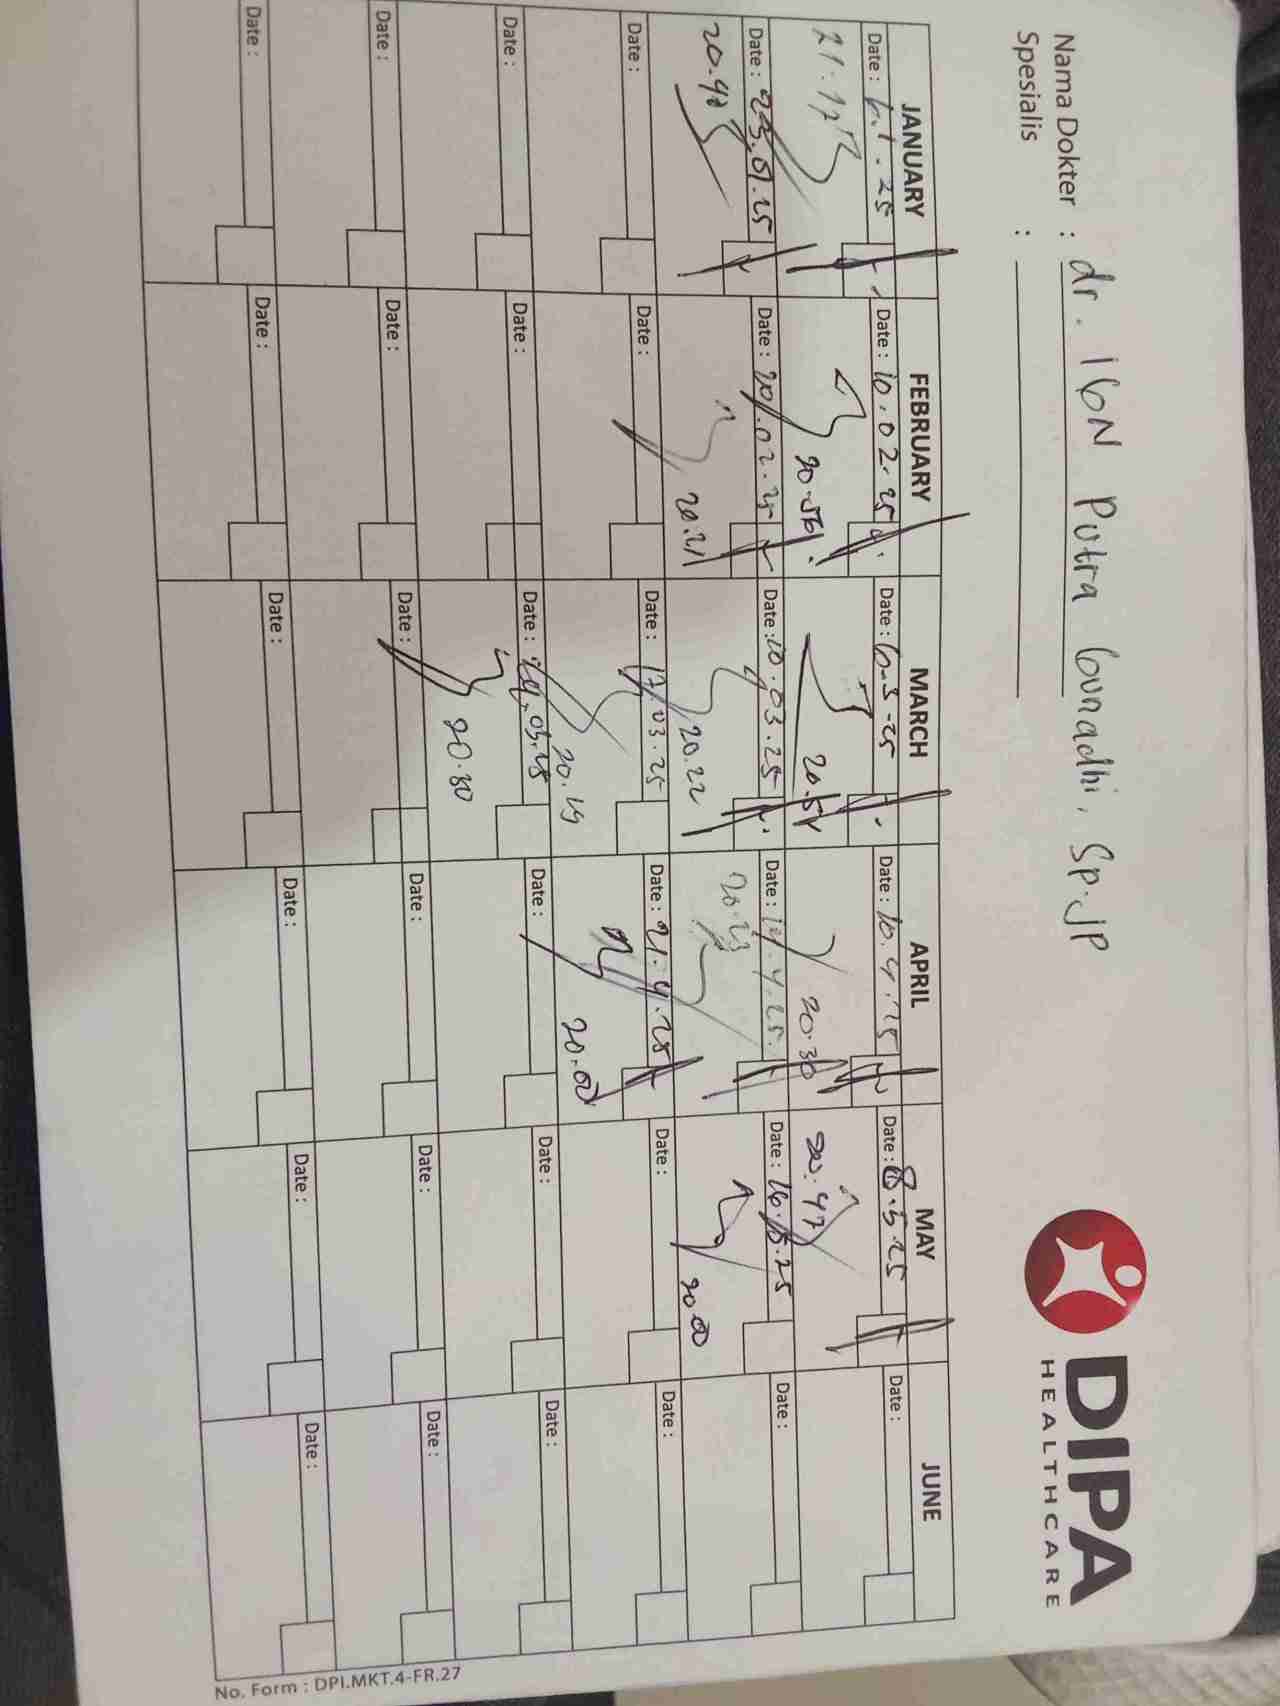 DIPA
HEALTHCARE
Nama Dokter : dr. IGN Putra Gunadhi, Sp.JP
Spesialis :
JANUARY FEBRUARY MARCH APRIL MAY JUNE
Date : 6.1.25 Date : 10.02.25 Date : 6.3-25 Date : 10.4.25 Date : 8.5.25 Date :
21.17 20.56 20.54 20.30 20.47
Date : 23.01.25 Date : 20.02.25 Date : 10.03.25 Date : 14.4.25 Date : 16.5.25 Date :
20.48 20.21 20.22 20.23 20.00
Date : Date : Date : 17.03.25 Date : 21.4.25 Date : Date :
20.19 20.00
Date : Date : Date : 24.03.25 Date : Date : Date :
20.30
Date : Date : Date : Date : Date : Date :
Date : Date : Date : Date : Date : Date :
No. Form : DPI.MKT.4-FR.27